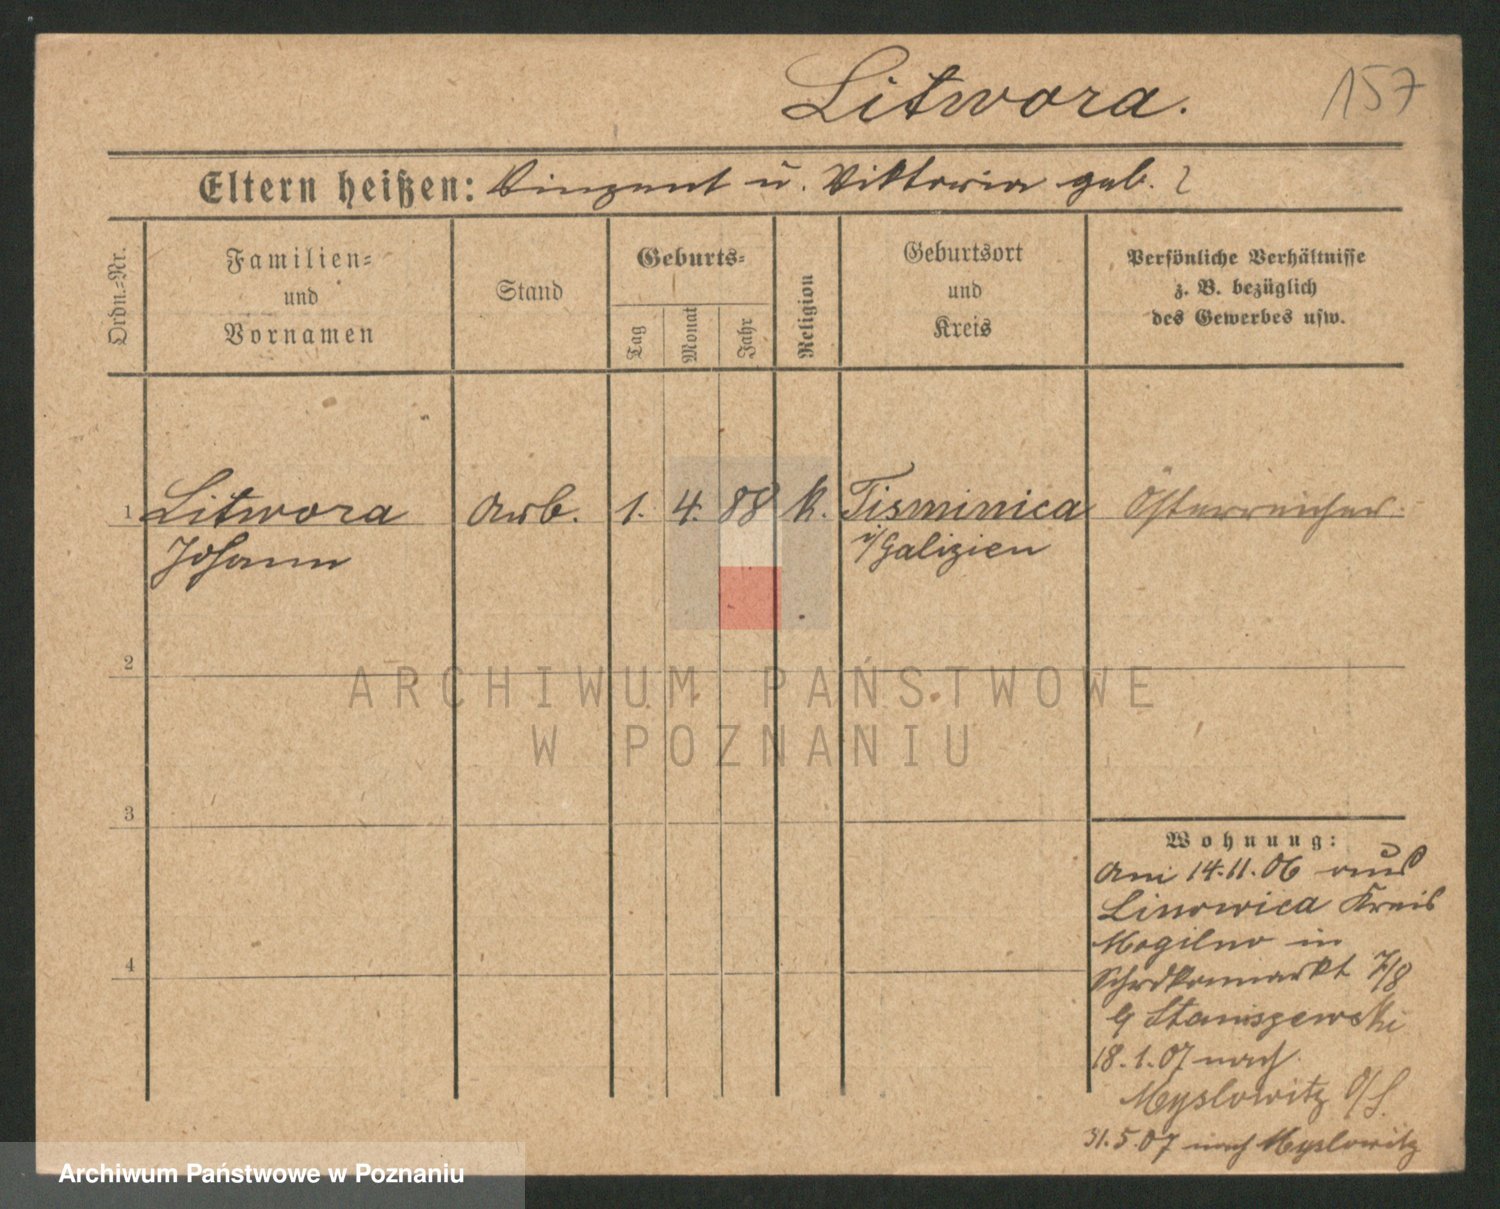 Litwora.
157
Eltern heißen: Vinzent u. Viktoria geb. ?
Ordn.-Nr.
Familien-
und
Vornamen
Stand
Geburts-
Tag
Monat
Jahr
Religion
Geburtsort
und
Kreis
Persönliche Verhältnisse
z. B. bezüglich
des Gewerbes usw.
1 Litwora Arb. 1. 4. 88 k. Tisminica Österreicher.
Johann i/Galizien
2
ARCHIWUM PAŃSTWOWE
W POZNANIU
3
Wohnung:
Am 14.11.06 aus
Linowica Kreis
Mogilno in
4
7/8
Staniszewski
18.1.07 nach
Myslowitz O/S.
31.5.07 nach Myslowitz
Archiwum Państwowe w Poznaniu